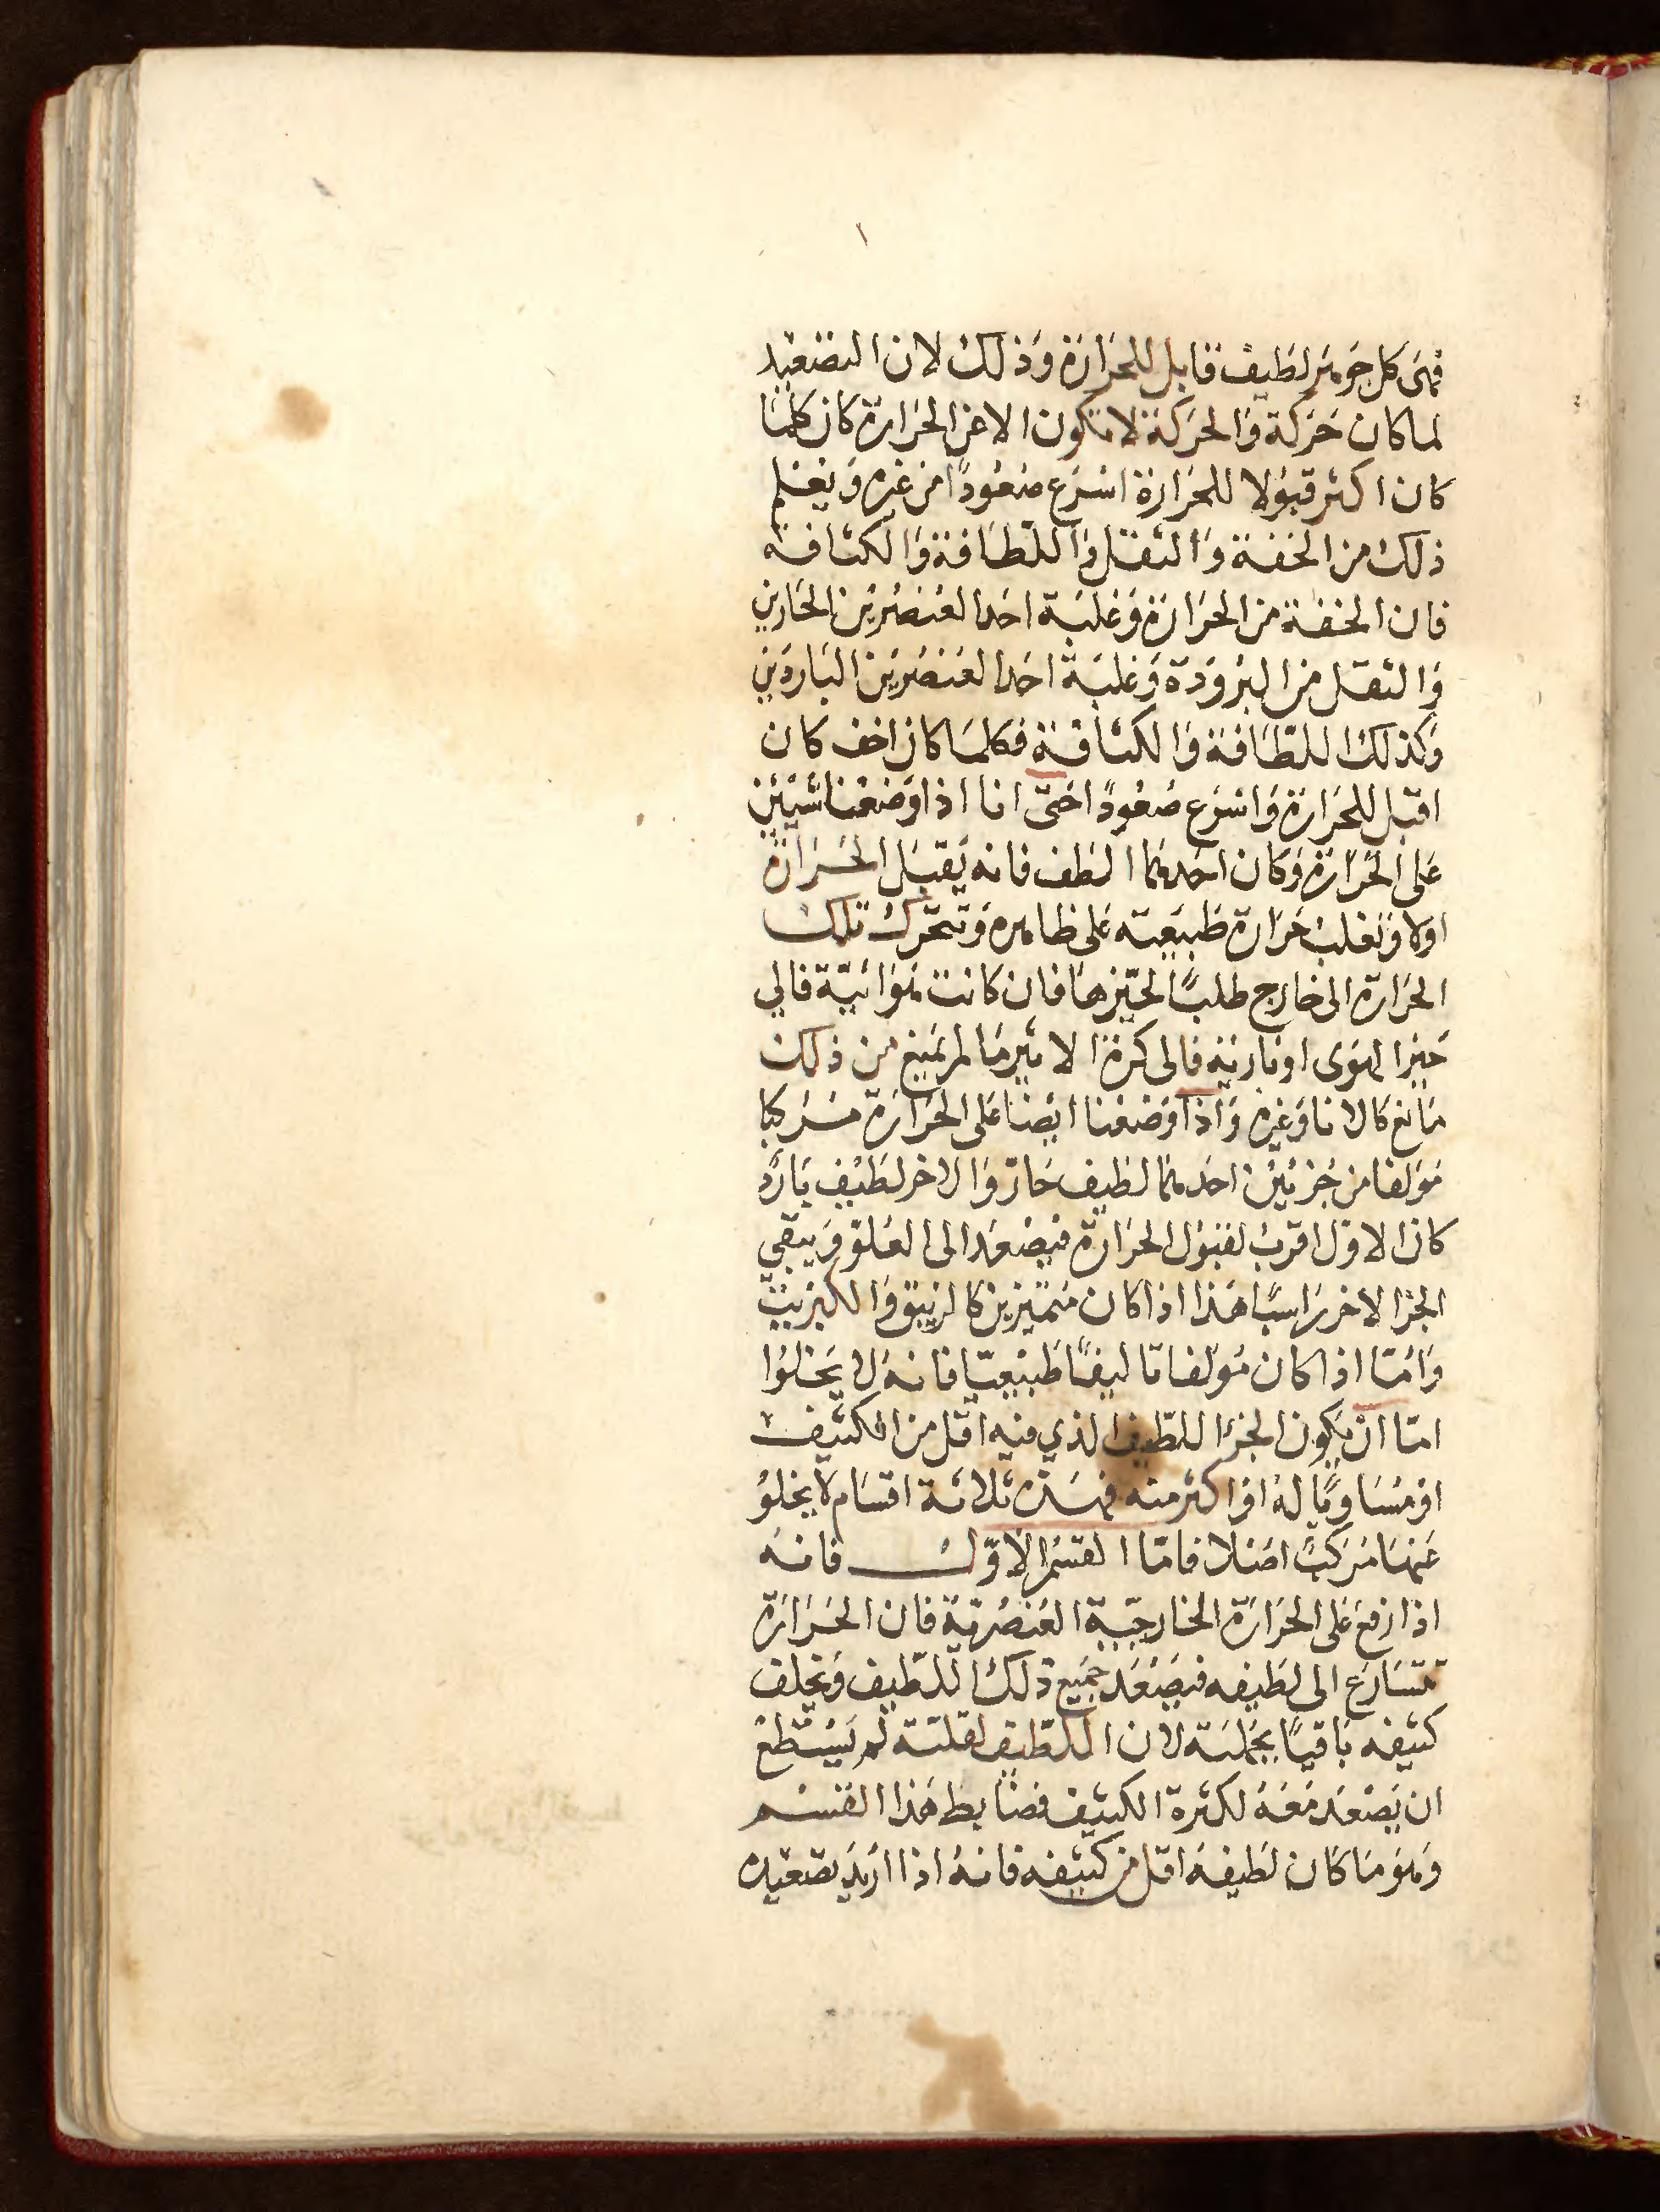 فهى كل جوهر لطيف قابل للحرارة وذلك لان التصعيد
لما كان حركة والحركة لا تكون الا عن الحرارة كان كلما
كان اكثر قبولا للحرارة اسرع صعودًا من غيره ويعلم
ذلك من الخفة والثقل واللطافة والكثافة
فان الخفة من الحرارة وغلبة احد العنصرين الحارين
والثقل من البرودة وغلبة احد العنصرين الباردين
وكذلك اللطافة والكثافة فكلما كان اخف كان
اقبل للحرارة واسرع صعودًا حتى انا اذا وضعنا شيئين
على الحرارة وكان احدهما الطف فانه يقبل الحرارة
اولا وتغلب حرارة طبيعته على ظاهره وتتحرك تلك
الحرارة الى خارج طلبًا لحيّزها فان كانت هوائيّة فالي
حيز الهوى او نارية فالى كرة الاثير ما لم يمنع من ذلك
مانع كالانا وغيره واذا وضعنا ايضا على الحرارة مركبا
مؤلفا من جزئين احدهما لطيف حارّ والاخر لطيف بارد
كان الاول اقرب لقبول الحرارة فيصعد الى العلو ويبقي
الجزا الاخر راسبًا هذا اذا كان متميزين كالزيبق والكبريت
وامّا اذا كان مؤلفا تاليفًا طبيعيّا فانه لا يخلوا
امّا ان يكون الجزا اللطيف الذي فيه اقل من الكثيف
او مساويًا له او اكثر منه فهذه ثلاثة اقسام لا يخلو
عنها مركبً اصلا فامّا القسم الاوّل فانه
اذا رفع على الحرارة الخارجيّة العنصرية فان الحرارة
تتسارع الى لطيفه فيصعد جميع ذلك اللطيف ويخلف
كثيفه باقيًا بجملته لان اللطيف لقلته لم يستطع
ان يصعد معه لكثرة الكثيف فضابط هذا القسم
وهو ما كان لطيفه اقل من كثيفه فانه اذا اريد تصعيده